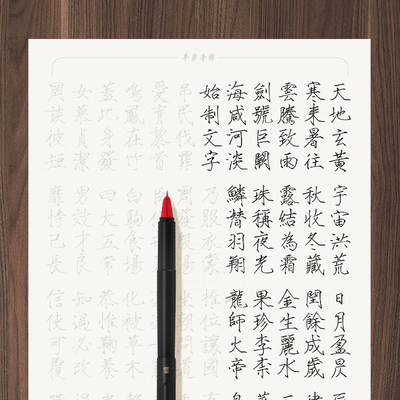 天地玄黃 宇宙洪荒 日月盈昃
寒来暑往 秋收冬藏 閏餘成歲
雲騰致雨 露結為霜 金生麗水
劍號巨闕 珠稱夜光 果珍李柰
海咸河淡 鱗潛羽翔 龍師火帝
始制文字 乃服衣裳 推位讓國
弔民伐罪 周發殷湯 坐朝問道
愛育黎首
鳴鳳在竹 白駒食場 化被草木
蓋此身髮 四大五常 恭惟鞠養
女慕貞潔 男效才良 知過必改
罔談彼短 靡恃己長 信使可覆